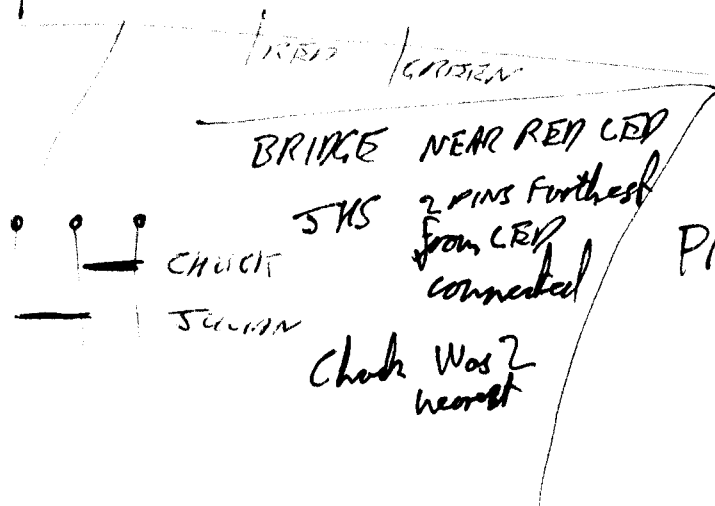 RED GREEN
BRIDGE NEAR RED LED
JHS 2 PINS Furthest
from LED
connected
CHUCK
JULIAN
Chuck Was 2
nearest